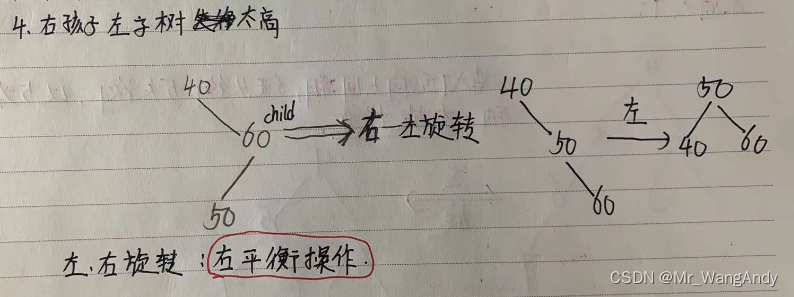 4. 右孩子左子树太高
40
60 child
50
右-左旋转
40
50
60
左
50
40 60
左、右旋转：右平衡操作.
CSDN @Mr_WangAndy